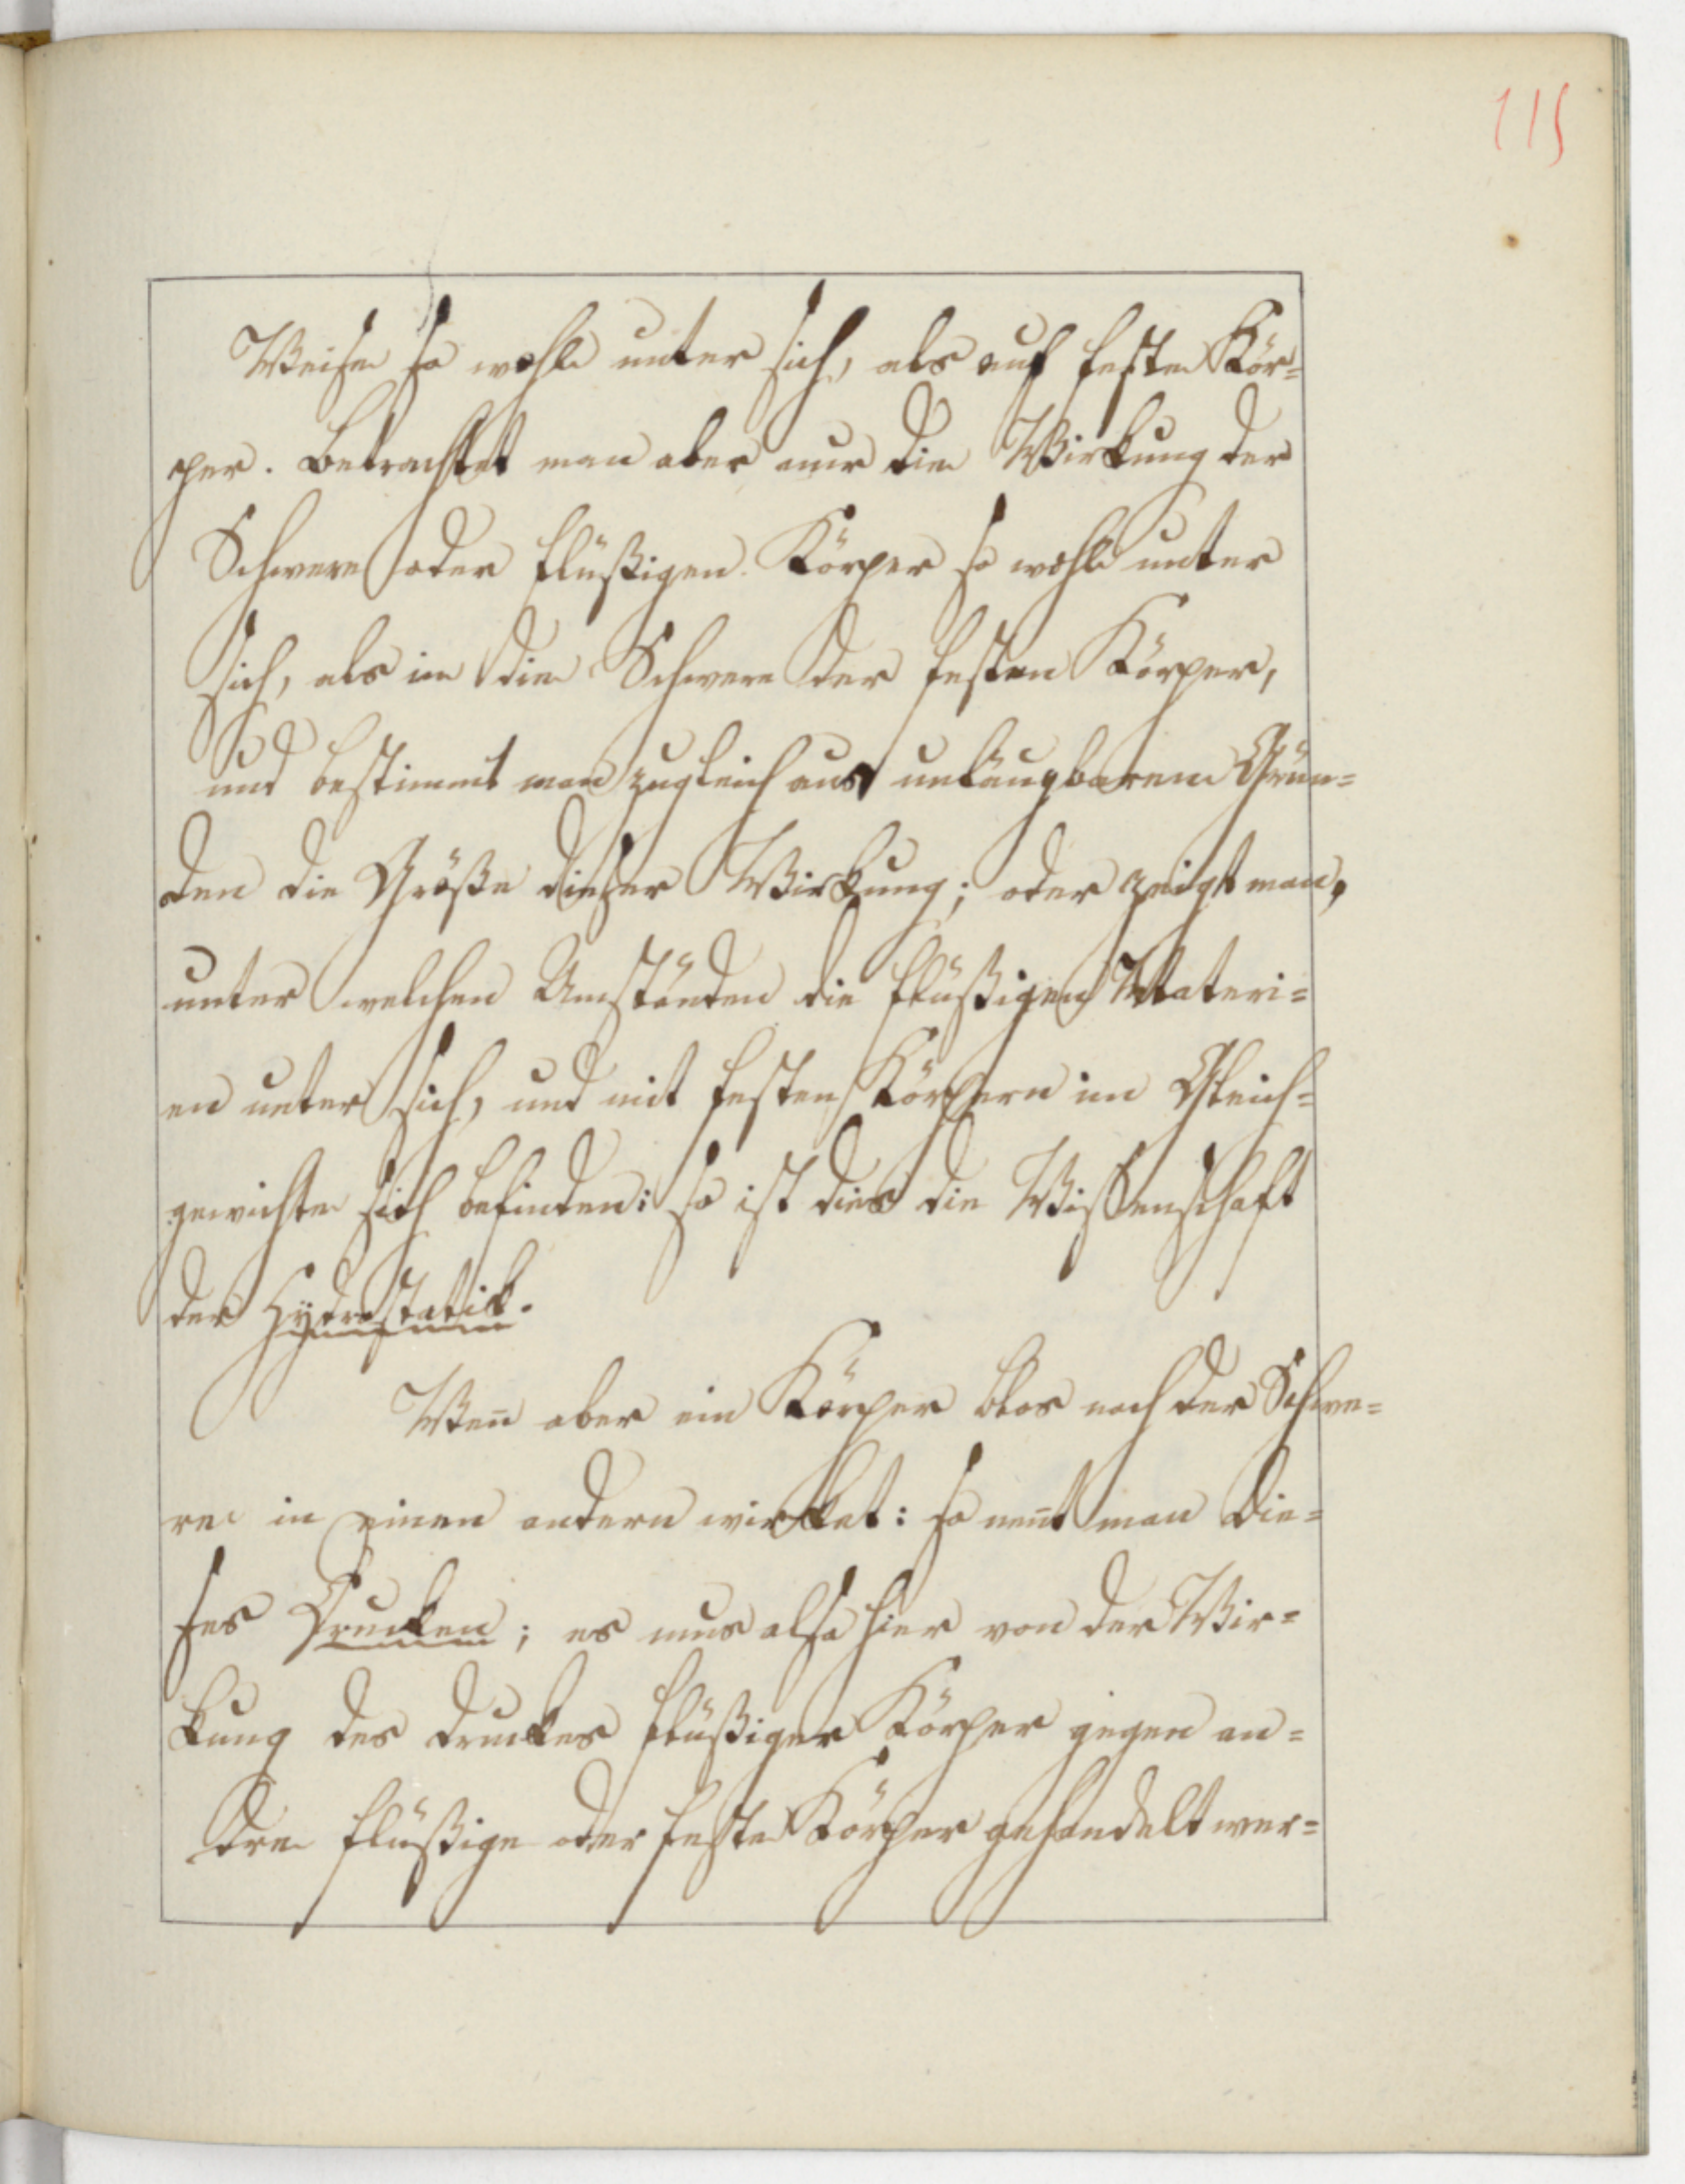 115
Weise so wohl unter sich, als auf feste Kör=
per. Betrachtet man aber nur die Wirkung der
Schwere oder flüßigen Körper so wohl unter
sich, als in die Schwere der festen Körper,
und bestimmt man zugleich aus unläugbaren Grün=
den die Größe dieser Wirkung; oder zeigt man,
unter welchen Umständen die flüßigen Materi=
en unter sich, und mit festen Körpern im Gleich=
gewichte sich befinden: so ist dies die Wissenschaft
der Hydrostatik.
Weñ aber ein Körper blos nach der Schwe=
re in einen andern wirket: so neñt man die=
ses Drucken; es mus also hier von der Wir=
kung des Druckes flüßiger Körper gegen an=
dre flüßige oder feste Körper gehandelt wer=